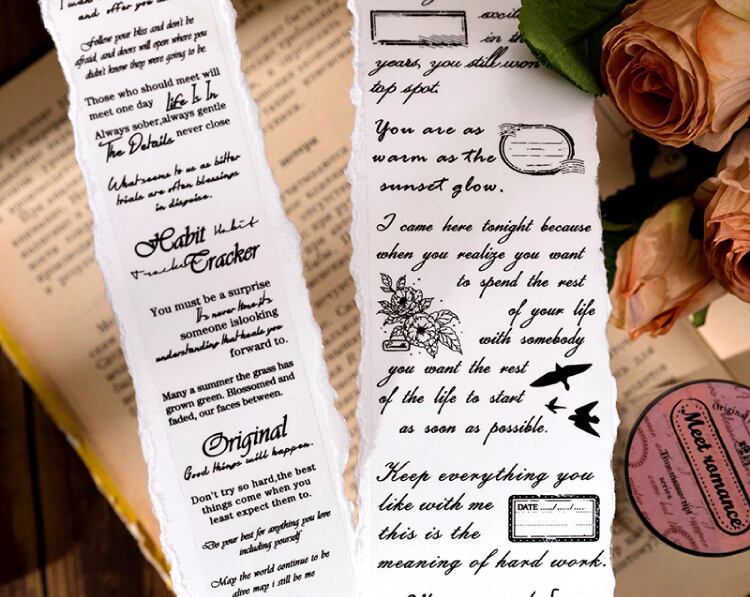 and offer you
Follow your bliss and don't be
afraid, and doors will open where you
didn't know they were going to be.
Those who should meet will
meet one day Life Is In
Always sober,always gentle
The Details never close
What seems to us as bitter
trials are often blessings
in disguise.
Habit Habit
Tracker Tracker
You must be a surprise
It's never time it's
someone islooking
understanding that heals you
forward to.
Many a summer the grass has
grown green. Blossomed and
faded, our faces between.
Original
Good things will happen.
Don't try so hard,the best
things come when you
least expect them to.
Do your best for anything you love
including yourself
May the world continue to be
alive may i still be me
in the
years, you still won
top spot.
You are as
warm as the
sunset glow.
I came here tonight because
when you realize you want
to spend the rest
of your life
with somebody
you want the rest
of the life to start
as soon as possible.
Keep everything you
like with me
this is the
meaning of hard work.
DATE ...../...../.....
Original
Meet romance
Time manuscript
series